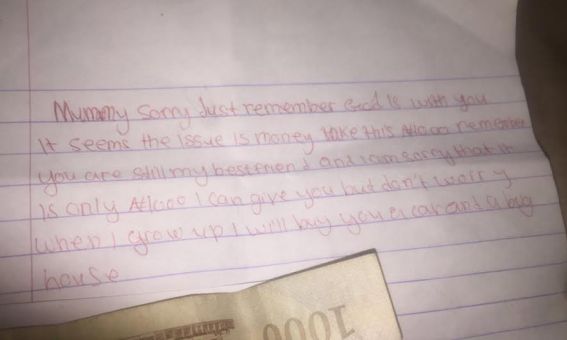 Mummy sorry Just remember God is with you
It seems the issue is money take this remember
you are still my best friend and I am sorry that it
is only I can give you but don't worry
when I grow up I will buy you a car and a big
house
1000